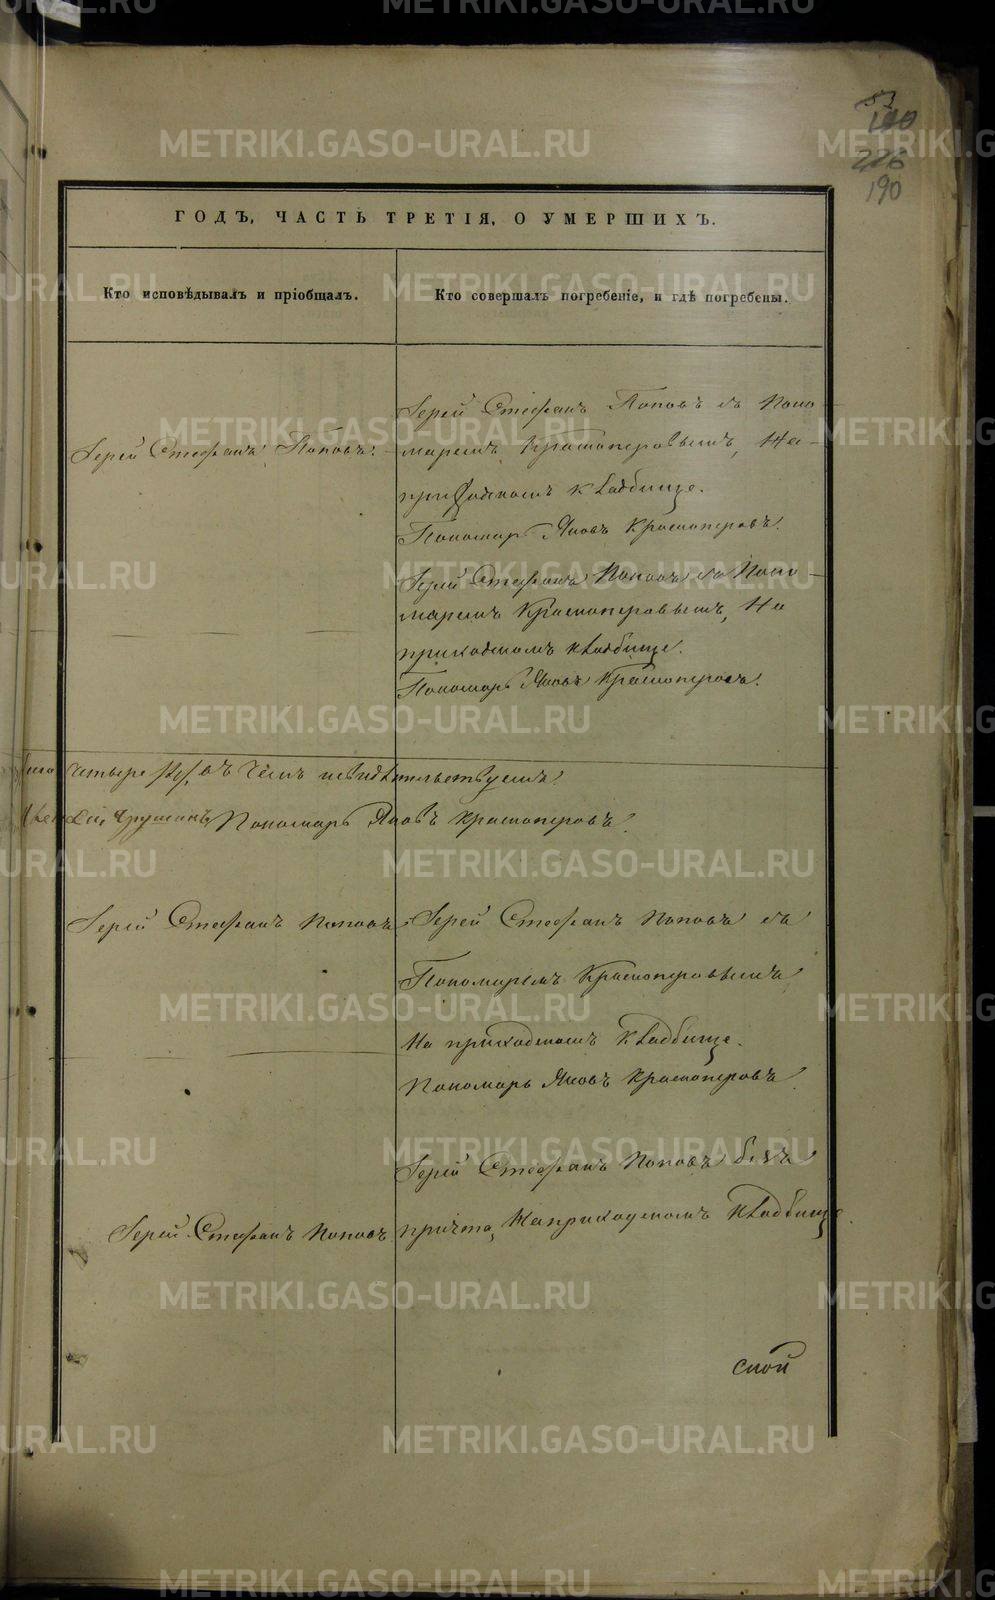 53
190
226
190
ГОДЪ, ЧАСТЬ ТРЕТІЯ, О УМЕРШИХЪ.
Кто исповѣдывалъ и пріобщалъ.
Кто совершалъ погребеніе, и гдѣ погребены.
Іерей Стефанъ Поповъ.
Іерей Стефанъ Поповъ съ Поно-
маремъ Красноперовымъ, На
приходскомъ кладбище.
Пономарь Яковъ Красноперовъ.
Іерей Стефанъ Поповъ съ Поно-
маремъ Красноперовымъ, На
приходскомъ кладбище.
Пономарь Яковъ Красноперовъ.
четыре въ чемъ и свидѣтельствуемъ
Пономарь Яковъ Красноперовъ.
Іерей Стефанъ Поповъ
Іерей Стефанъ Поповъ съ
Пономаремъ Красноперовымъ
На приходскомъ кладбище.
Пономарь Яковъ Красноперовъ.
Іерей Стефанъ Поповъ
Іерей Стефанъ Поповъ безъ
причта, На приходскомъ кладбище.
ской
METRIKI.GASO-URAL.RU